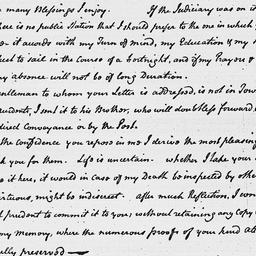 many Blessings I enjoy. If the Judiciary was on i
here is no public Station that I should prefer to the one in which
it accords with my Turn of mind, my Education & my
to sail in the Course of a fortnight, and if my Prayers &
my absence will not be of long Duration.
gentleman to whom your Letter is addressed, is not in Town
I sent it to his Brother; who will doubtless forward
direct Conveyance or by the Post.
the Confidence you repose in me I derive the most pleasing
k you for them. Life is uncertain. whether I take your
it here, it would in case of my Death be inspected by other
virtuous, might be indiscreet. after much Reflection, I con
prudent to commit it to you, without retaining any Copy
my memory, where the numerous proofs of your kind At
fully preserved —